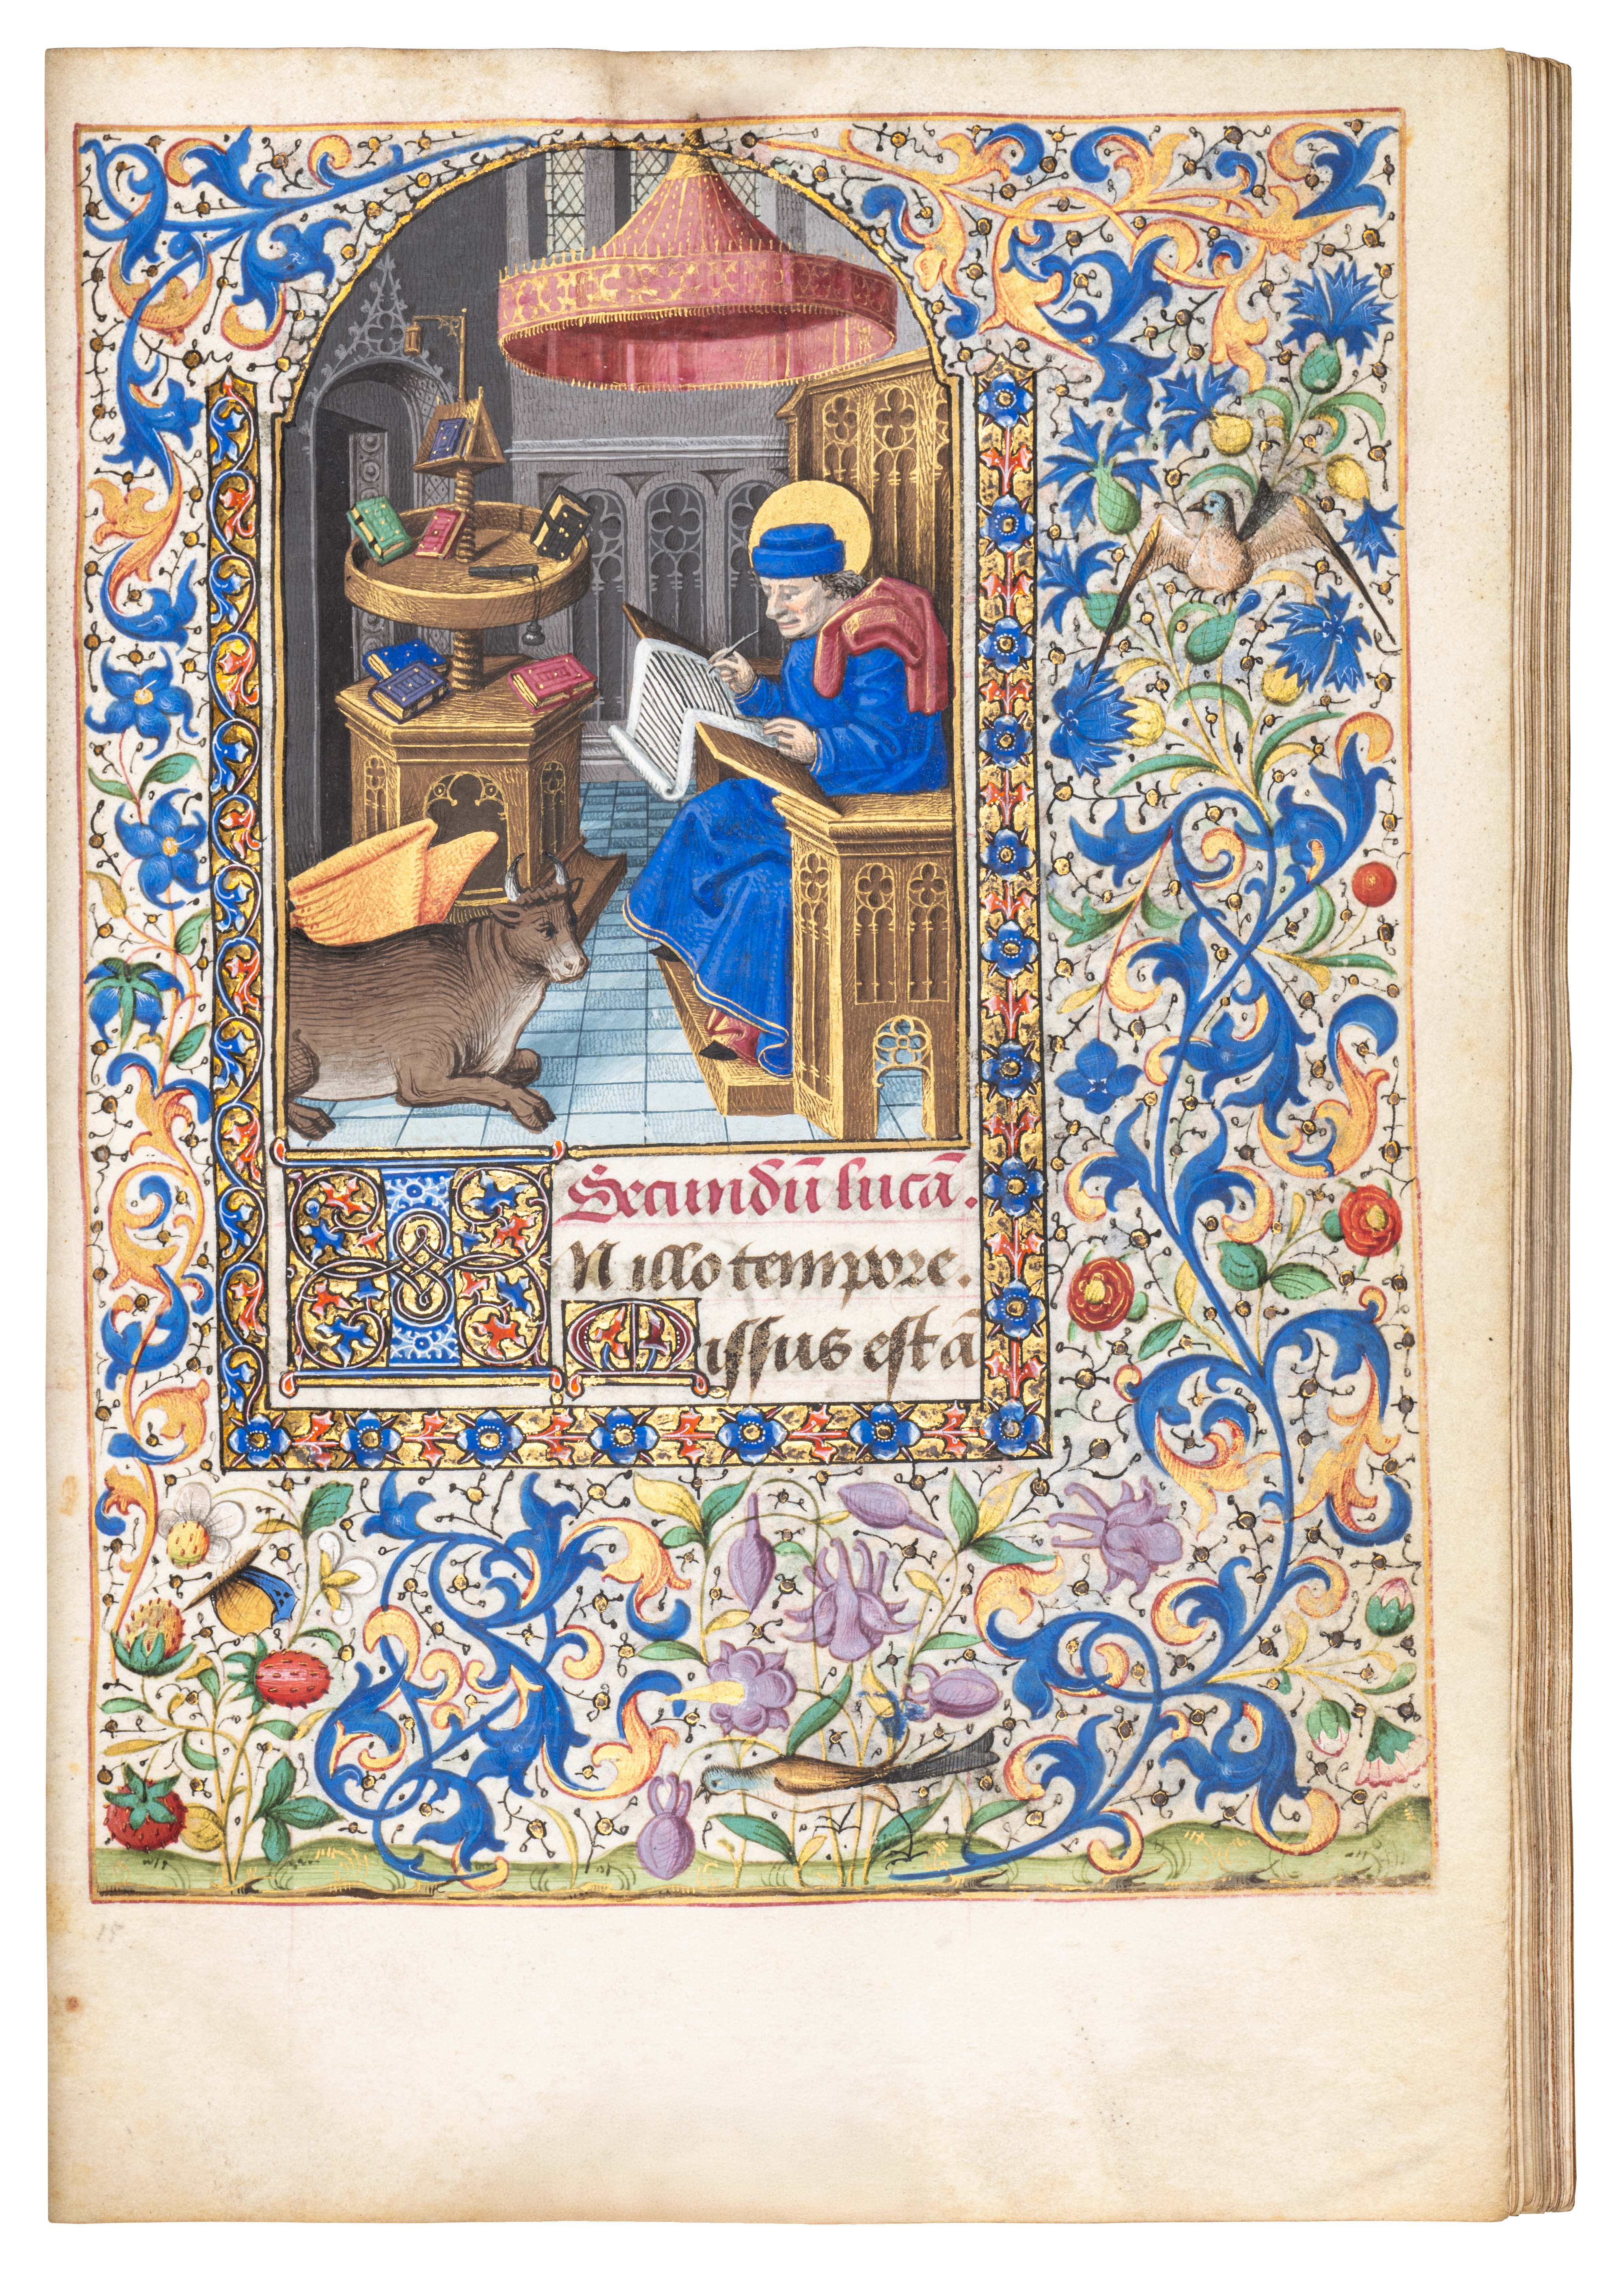 Secundū lucā.
IN illo tempore.
Missus est ā
15